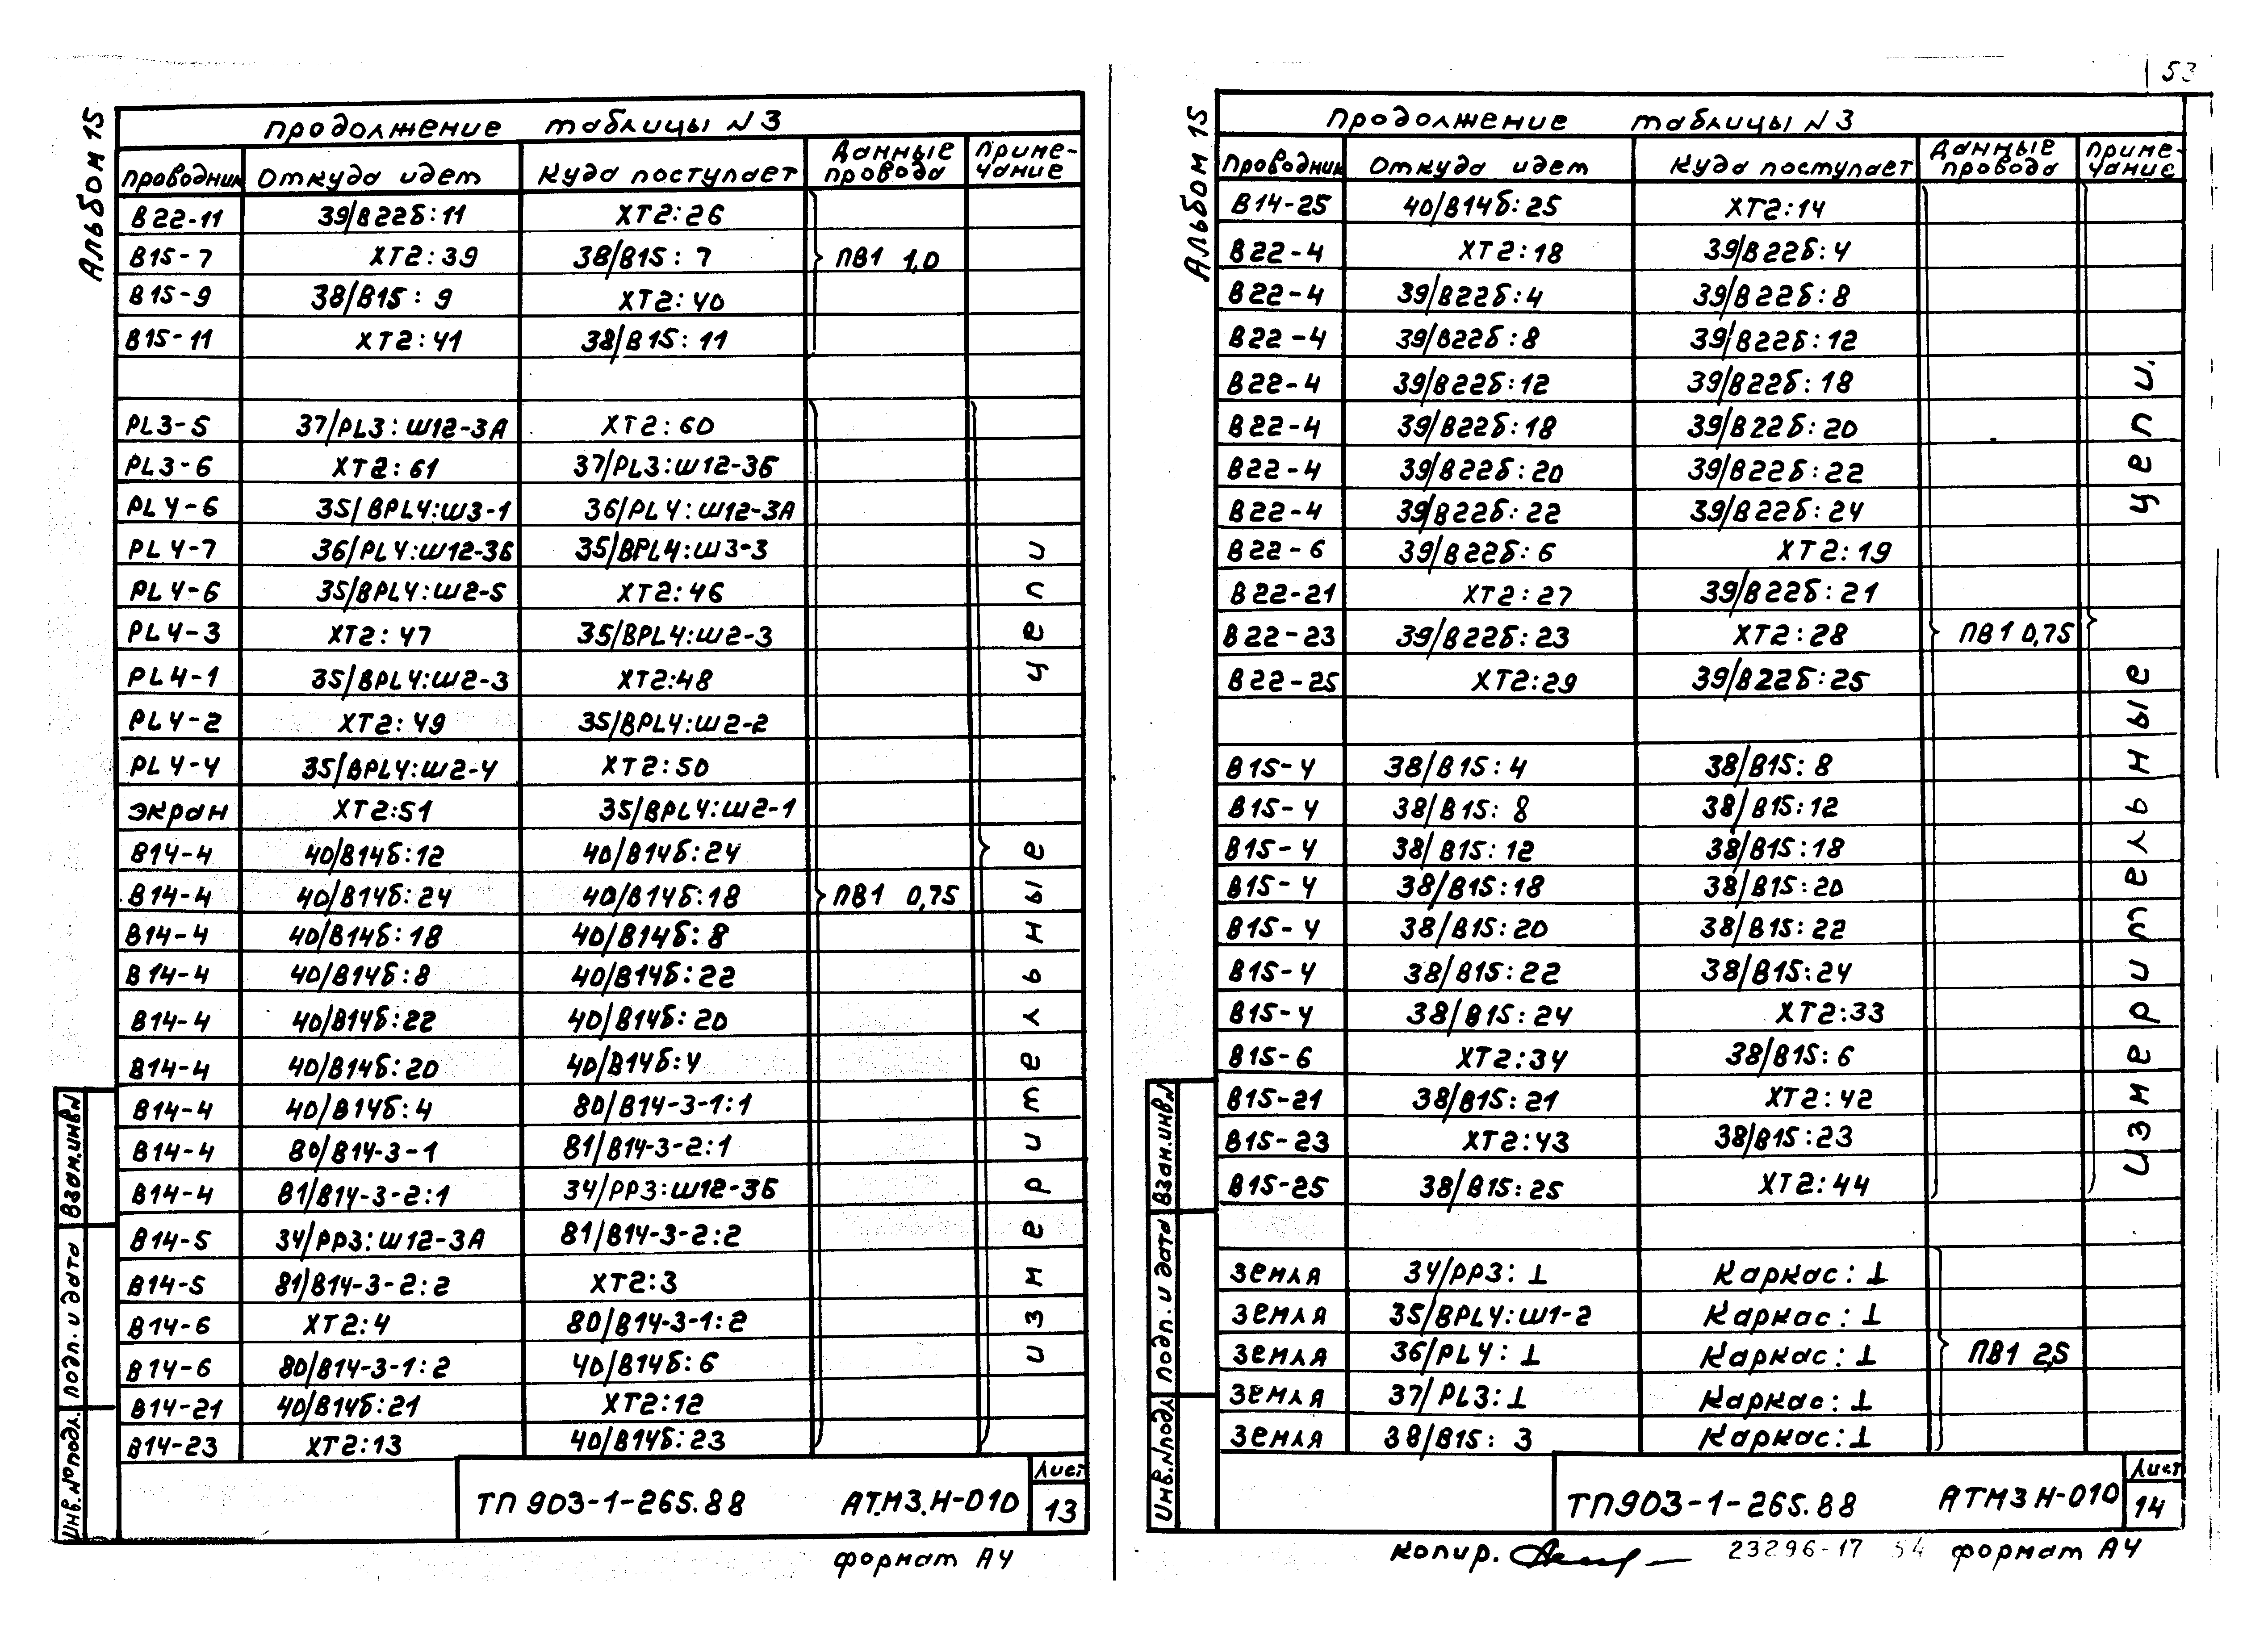 53
Альбом 15
Продолжение таблицы N3
Проводник Откуда идет Куда поступает Данные провода Приме-чание
В22-11 39/В22б:11 ХТ2:26
В15-7 ХТ2:39 38/В15:7 ПВ1 1,0
В15-9 38/В15:9 ХТ2:40
В15-11 ХТ2:41 38/В15:11
PL3-5 37/PL3:Ш12-3А ХТ2:60
PL3-6 ХТ2:61 37/PL3:Ш12-3Б
PL4-6 35/BPL4:Ш3-1 36/PL4:Ш12-3А
PL4-7 36/PL4:Ш12-3Б 35/BPL4:Ш3-3
PL4-6 35/BPL4:Ш2-5 ХТ2:46
PL4-3 ХТ2:47 35/BPL4:Ш2-3
PL4-1 35/BPL4:Ш2-3 ХТ2:48
PL4-2 ХТ2:49 35/BPL4:Ш2-2
PL4-4 35/BPL4:Ш2-4 ХТ2:50
экран ХТ2:51 35/BPL4:Ш2-1
В14-4 40/В14б:12 40/В14б:24
В14-4 40/В14б:24 40/В14б:18 ПВ1 0,75
В14-4 40/В14б:18 40/В14б:8
В14-4 40/В14б:8 40/В14б:22
В14-4 40/В14б:22 40/В14б:20
В14-4 40/В14б:20 40/В14б:4
В14-4 40/В14б:4 80/В14-3-1:1
В14-4 80/В14-3-1 81/В14-3-2:1
В14-4 81/В14-3-2:1 34/РР3:Ш12-3Б
В14-5 34/РР3:Ш12-3А 81/В14-3-2:2
В14-5 81/В14-3-2:2 ХТ2:3
В14-6 ХТ2:4 80/В14-3-1:2
В14-6 80/В14-3-1:2 40/В14б:6
В14-21 40/В14б:21 ХТ2:12
В14-23 ХТ2:13 40/В14б:23
измерительные цепи
Взам.инв.N
Подп. и дата
Инв.№подл.
ТП 903-1-265.88 АТМ3.Н-010
Лист
13
формат А4
Альбом 15
Продолжение таблицы N3
Проводник Откуда идет Куда поступает Данные провода Приме-чание
В14-25 40/В14б:25 ХТ2:14
В22-4 ХТ2:18 39/В22б:4
В22-4 39/В22б:4 39/В22б:8
В22-4 39/В22б:8 39/В22б:12
В22-4 39/В22б:12 39/В22б:18
В22-4 39/В22б:18 39/В22б:20
В22-4 39/В22б:20 39/В22б:22
В22-4 39/В22б:22 39/В22б:24
В22-6 39/В22б:6 ХТ2:19
В22-21 ХТ2:27 39/В22б:21
В22-23 39/В22б:23 ХТ2:28 ПВ1 0,75
В22-25 ХТ2:29 39/В22б:25
В15-4 38/В15:4 38/В15:8
В15-4 38/В15:8 38/В15:12
В15-4 38/В15:12 38/В15:18
В15-4 38/В15:18 38/В15:20
В15-4 38/В15:20 38/В15:22
В15-4 38/В15:22 38/В15:24
В15-4 38/В15:24 ХТ2:33
В15-6 ХТ2:34 38/В15:6
В15-21 38/В15:21 ХТ2:42
В15-23 ХТ2:43 38/В15:23
В15-25 38/В15:25 ХТ2:44
Измерительные цепи.
Земля 34/РР3:⊥ Каркас:⊥
Земля 35/BPL4:Ш1-2 Каркас:⊥
Земля 36/PL4:⊥ Каркас:⊥ ПВ1 2,5
Земля 37/PL3:⊥ Каркас:⊥
Земля 38/В15:3 Каркас:⊥
Взам.инв.N
Подп. и дата
Инв.№подл
ТП903-1-265.88 АТМ3 Н-010
Лист
14
Копир. 23296-17 54 формат А4